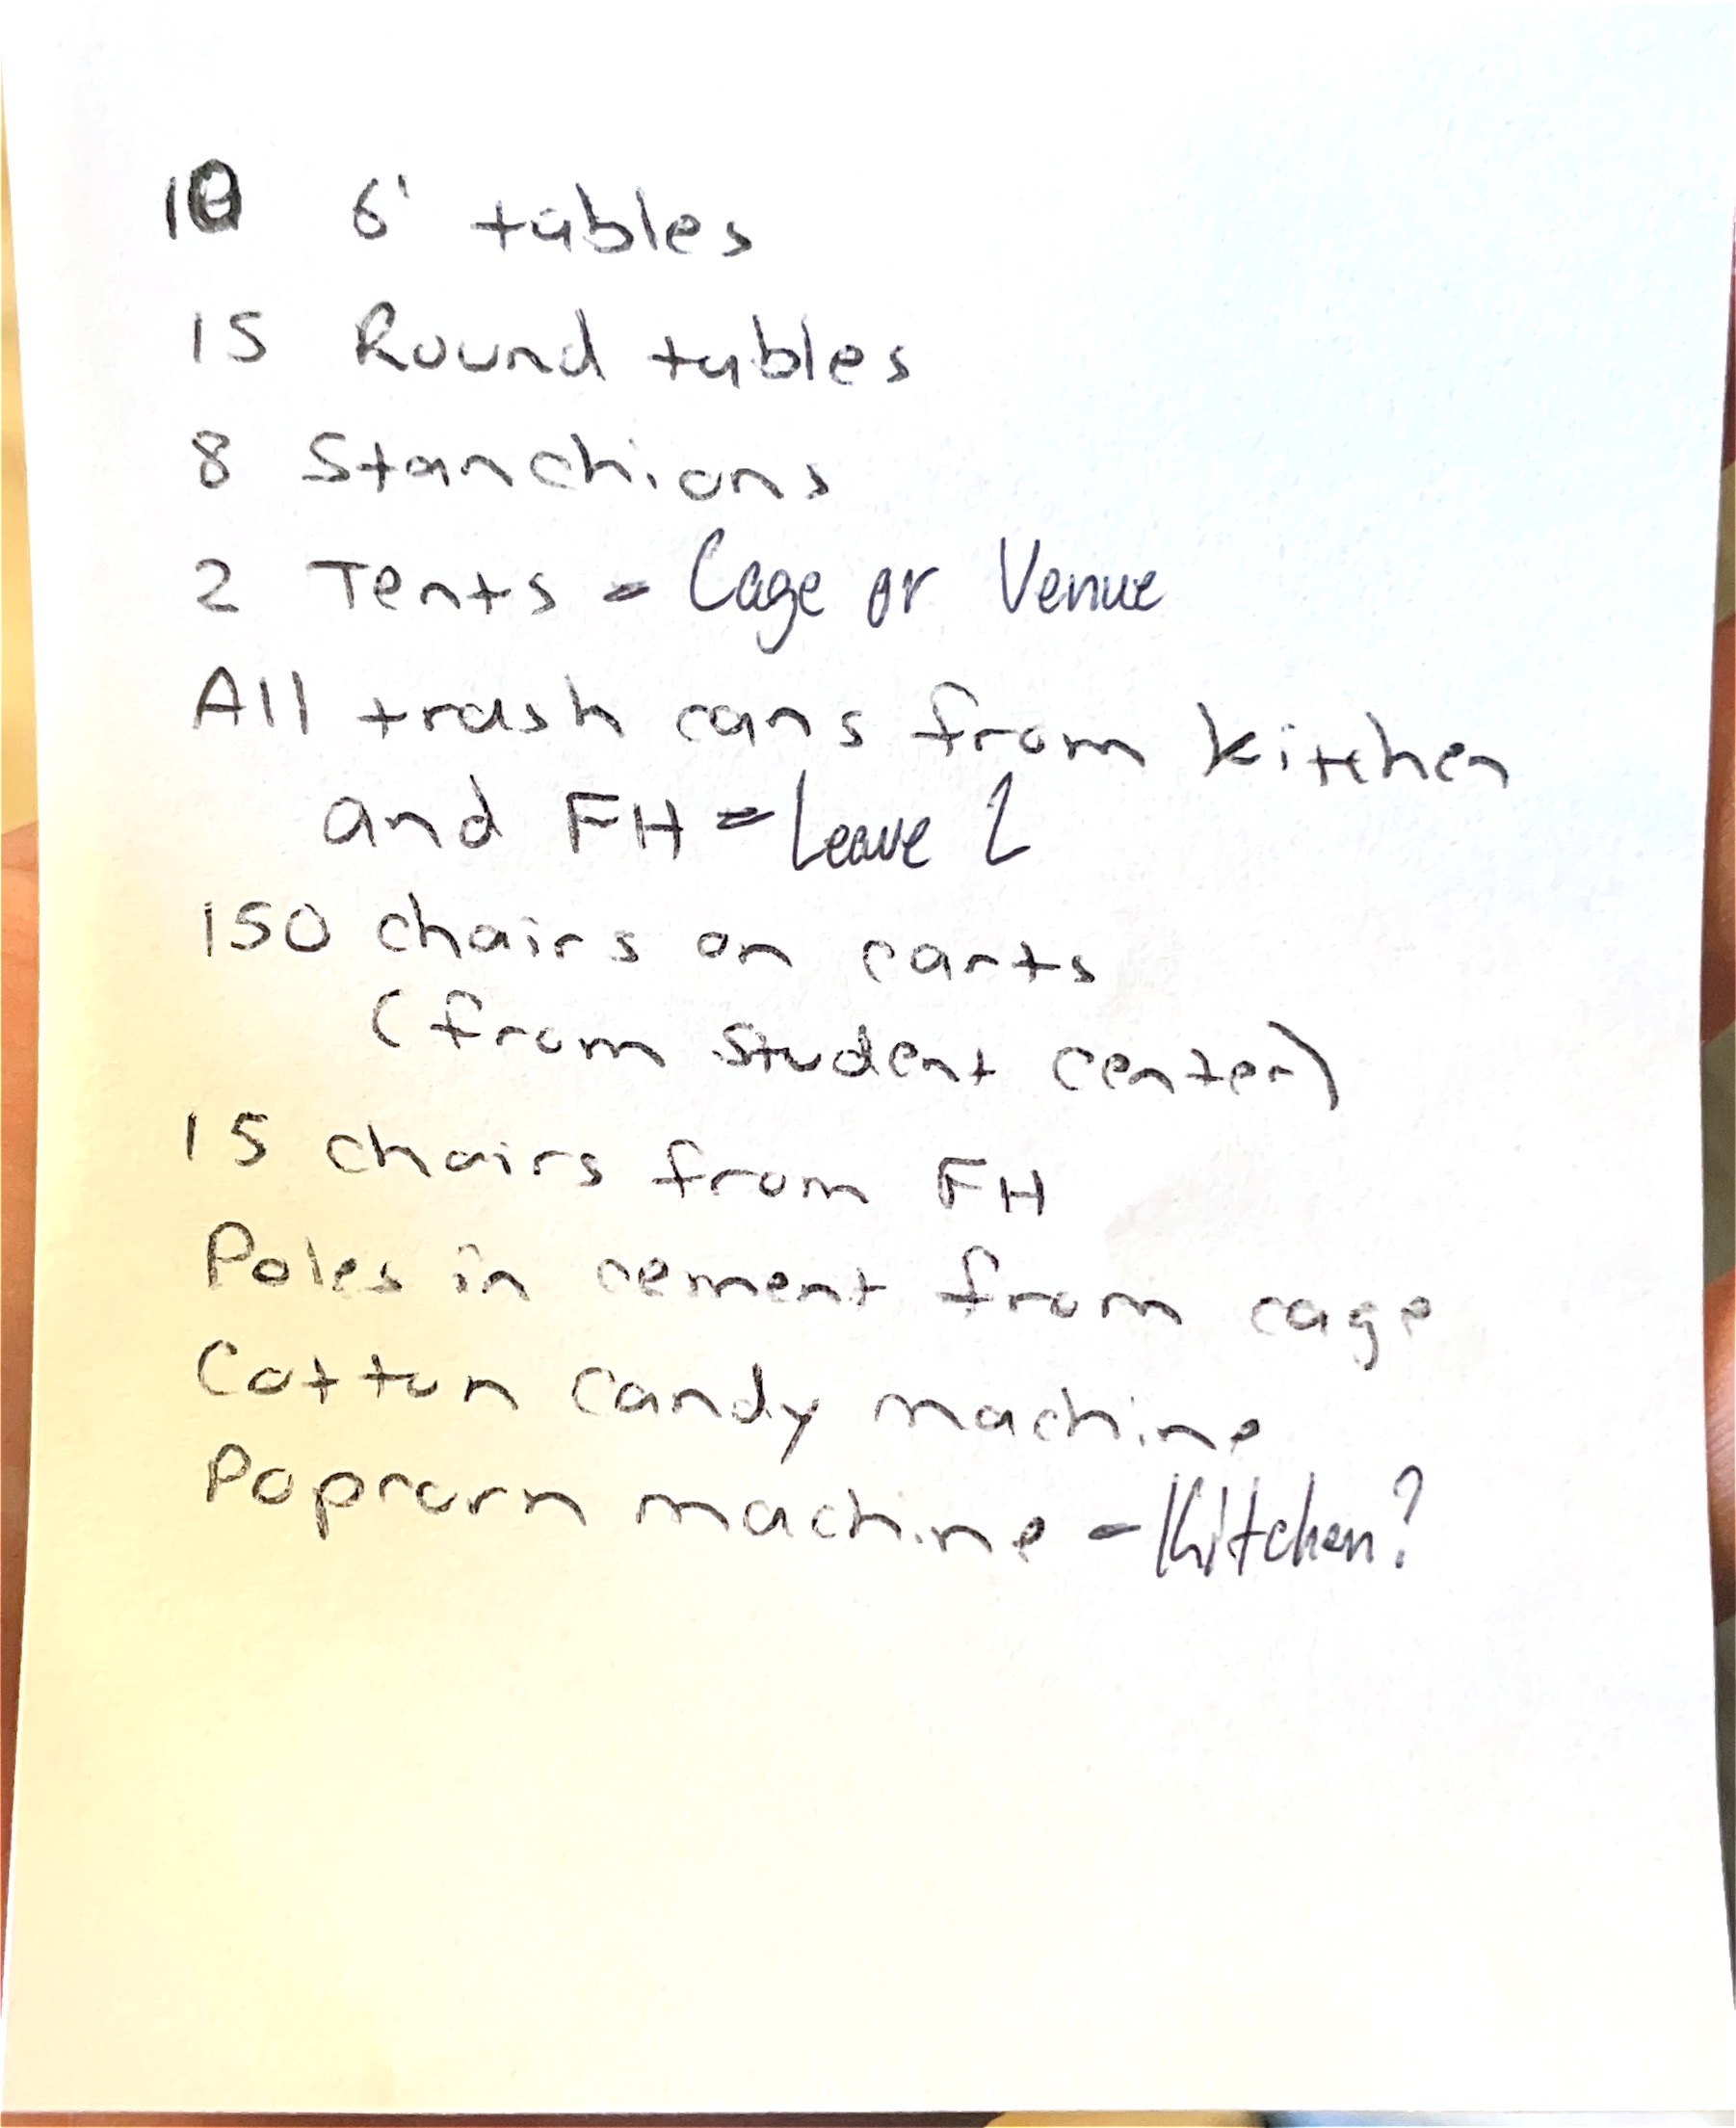 10 6' tables
15 Round tables
8 Stanchions
2 Tents - Cage or Venue
All trash cans from kitchen
and FH - Leave 2
150 chairs on carts
(from student center)
15 chairs from FH
Poles in cement from cage
Cotton candy machine
Popcorn machine - Kitchen?